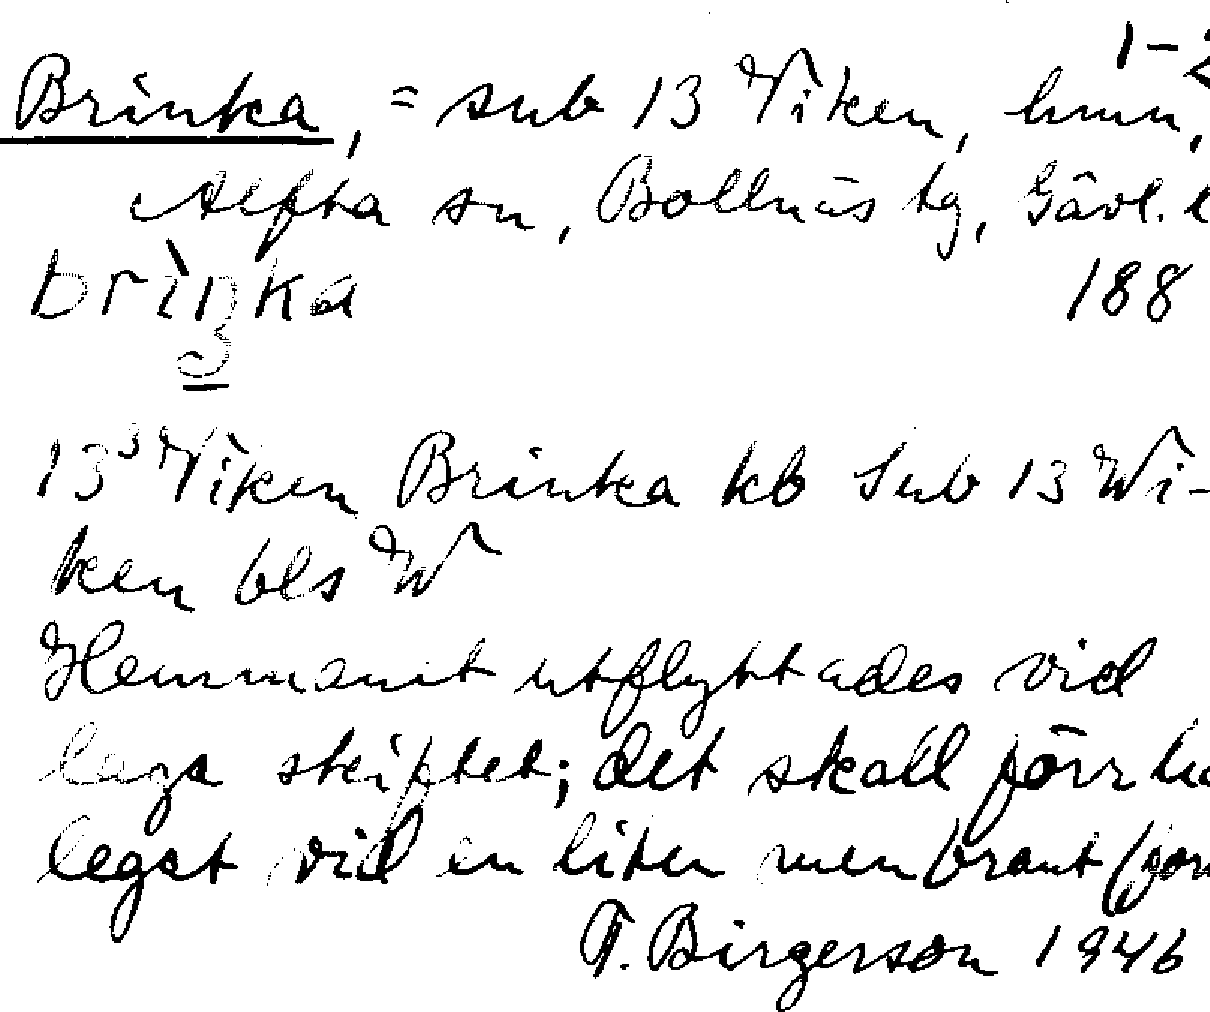 1-2
Brinka, = sub 13 Viken, hmn,
Alfta sn, Bollnäs tg, Gävl. l
brìŋka 188
13³ Viken Brinka kb Sub 13 Wi-
ken bls W
Hemmanet utflyttades vid
laga skiftet; det skall förr ha
legat vid en liten men brant (jor
T. Birgerson 1946